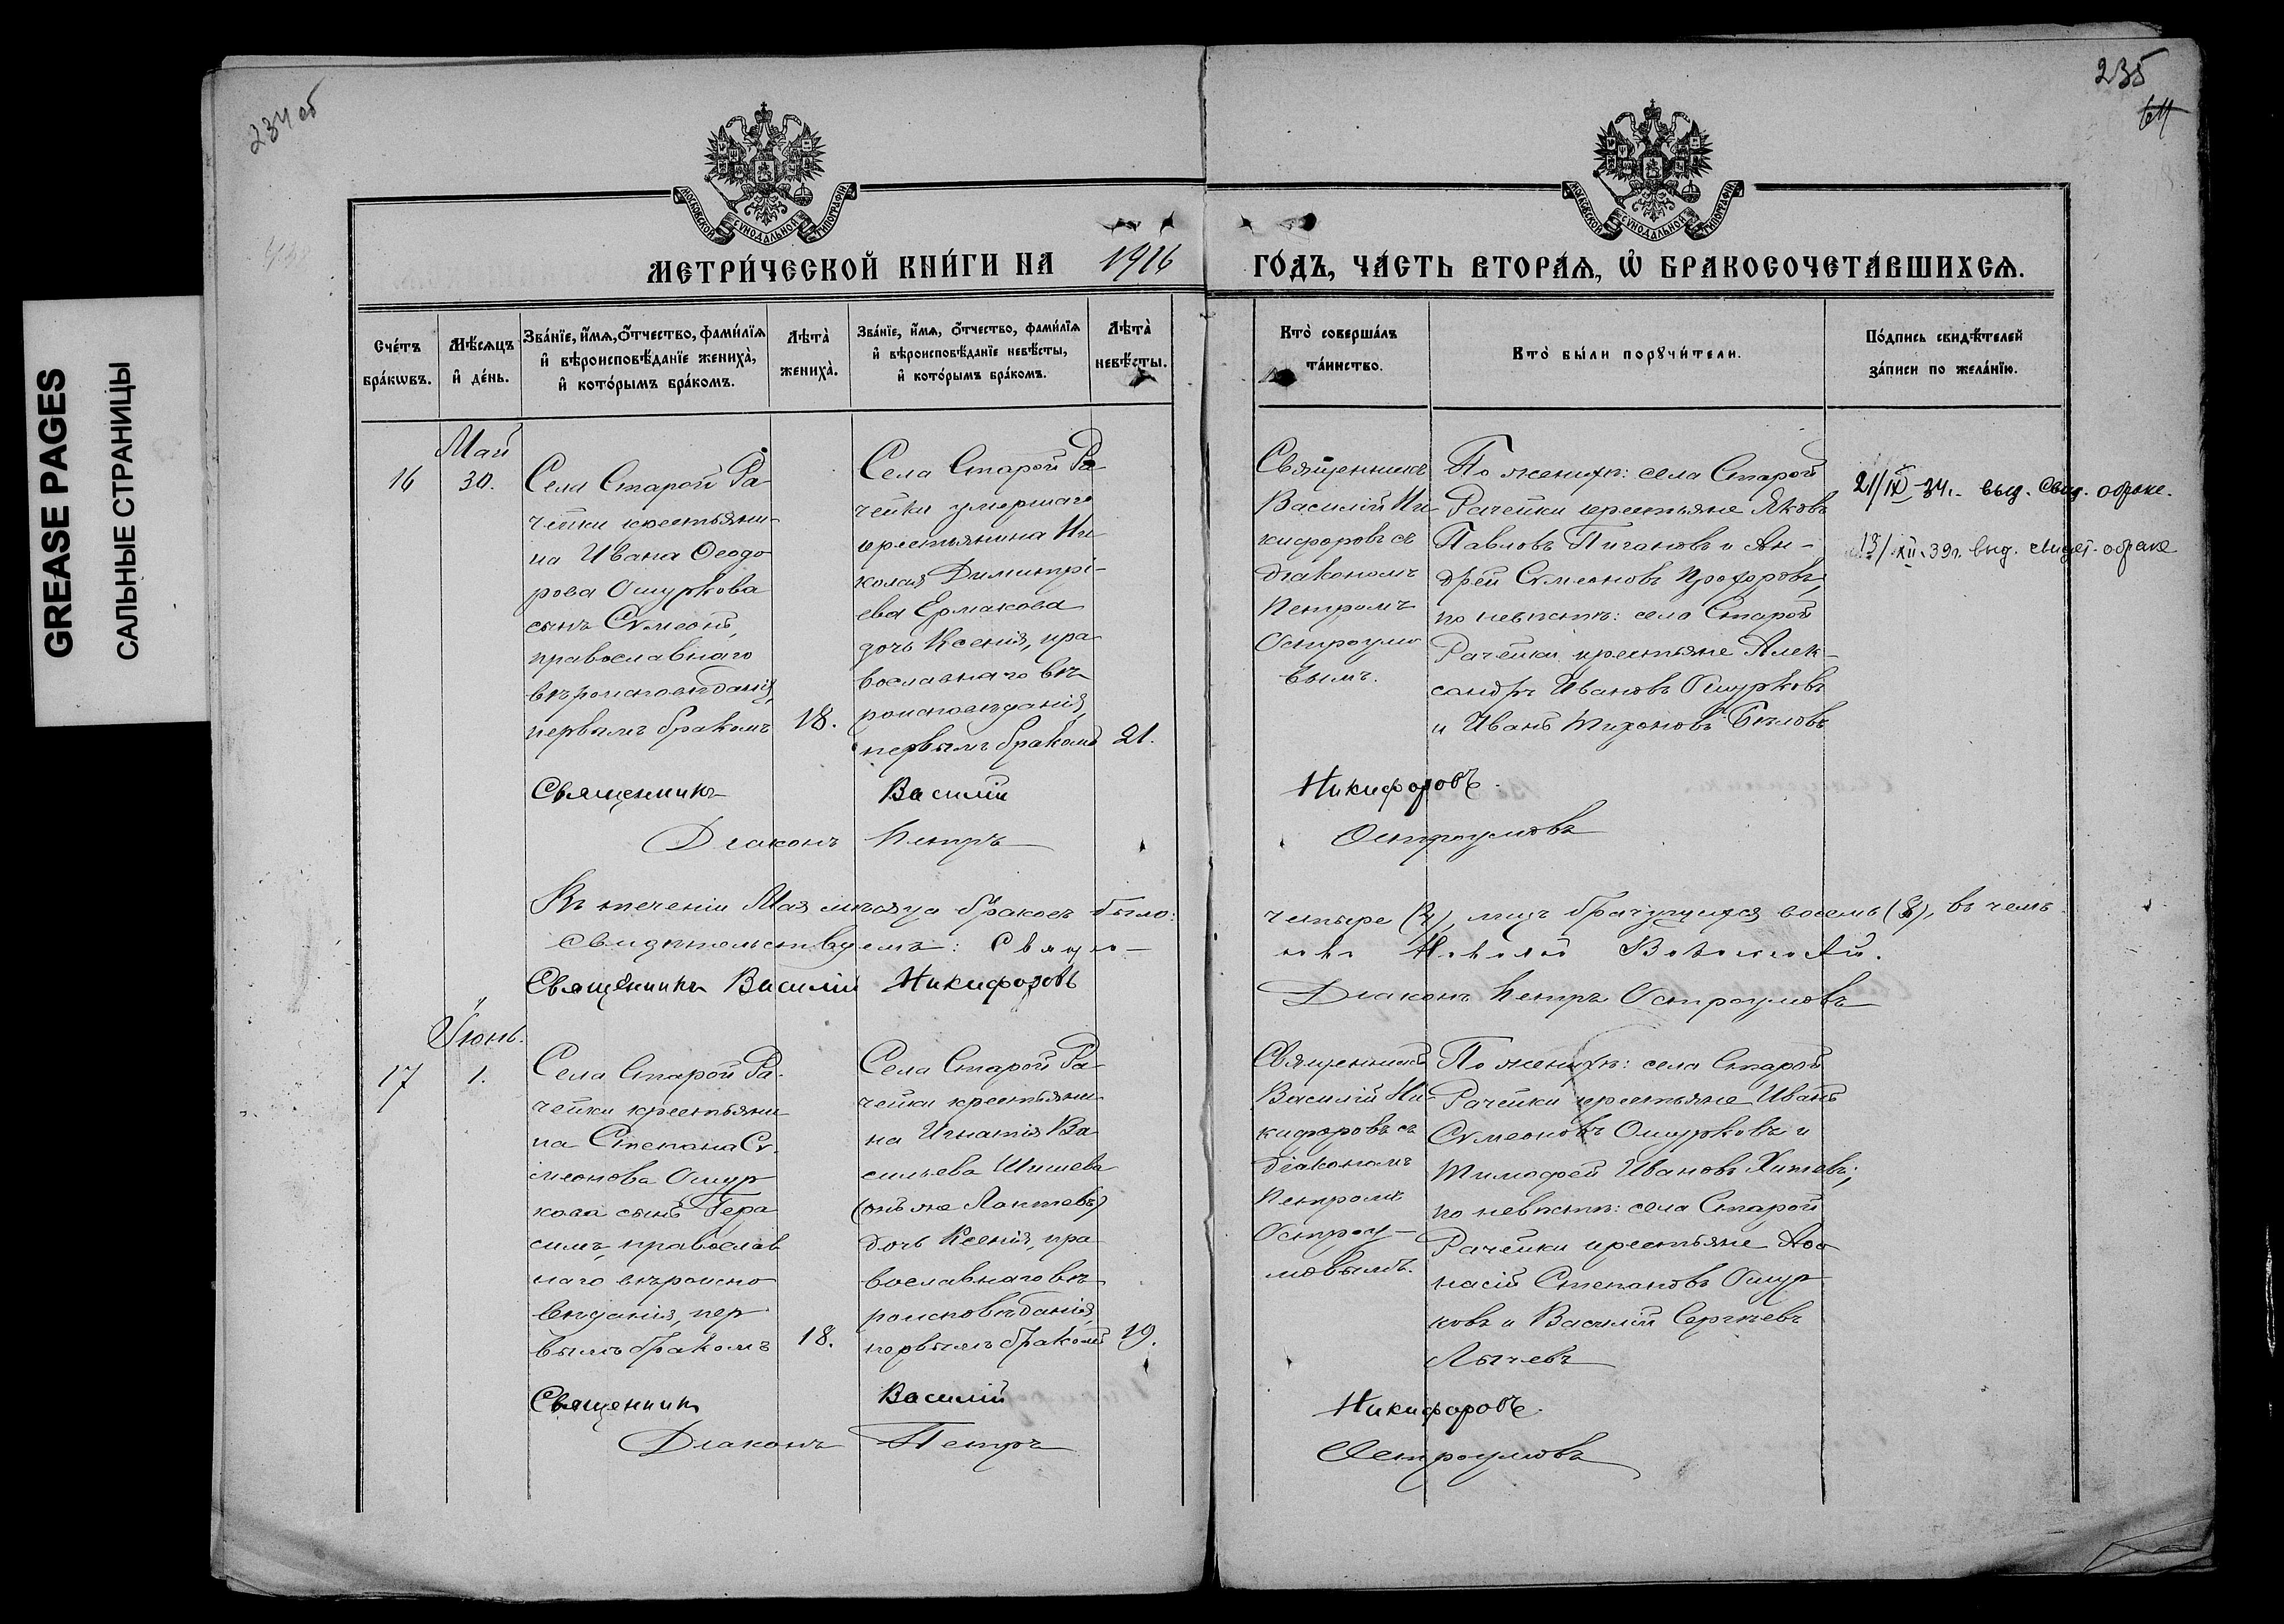 GREASE PAGES
САЛЬНЫЕ СТРАНИЦЫ
234 об
235
МОСКОВСКОЙ СѴНОДАЛЬНОЙ ТИПОГРАФІИ
МОСКОВСКОЙ СѴНОДАЛЬНОЙ ТИПОГРАФІИ
МЕТРИ́ЧЕСКОЙ КНИ́ГИ НА 1916
ГО́ДЪ, ЧА́СТЬ ВТОРА́Я, Ѽ БРАКОСОЧЕТА́ВШИХСЯ.
Сче́тъ
бра́кѡвъ.
Мѣ́сяцъ
и҆ де́нь.
Зва́нїе, и҆́мя, ѻ҆́тчество, фами́лїя
и҆ вѣроисповѣ́данїе жениха̀,
и҆ кото́рымъ бра́комъ.
Лѣта̀
жениха̀.
Зва́нїе, и҆́мя, ѻ҆́тчество, фами́лїя
и҆ вѣроисповѣ́данїе невѣ́сты,
и҆ кото́рымъ бра́комъ.
Лѣта̀
невѣ́сты.
Кто̀ соверша́лъ
та́инство.
Кто̀ бы́ли порꙋчи́тели.
По́дпись свидѣ́телей
за́писи по жела́нїю.
16
Май
30.
Села Старой Ра-
чейки крестьяни-
на Ивана Ѳеодо
рова Ошуркова
сынъ Сѵмеонъ,
православнаго
вѣроисповѣданія,
первымъ бракомъ
18.
Села Старой Ра-
чейки умершаго
крестьянина Ни-
колая Димитрі-
ева Ермакова
дочь Ксенія, пра-
вославнаго вѣ-
роисповѣданія,
первымъ бракомъ
21.
Священникъ
Василій Ни-
кифоровъ съ
діакономъ
Петромъ
Остроумо
вымъ.
По женихѣ: села Старой
Рачейки крестьяне Яковъ
Павловъ Пичановъ и Ан-
дрей Сѵмеоновъ Прохоровъ,
по невѣстѣ: села Старой
Рачейки крестьяне Алек-
сандръ Ивановъ Ошурковъ
и Иванъ Тихоновъ Бѣловъ
21/IX-34г. выд. Свид. о браке.
13/XII.39г. выд. свидет. о браке
Священникъ Василій Никифоровъ.
Діаконъ Петръ Остроумовъ
Въ теченіи Мая мѣсяца браковъ было: четыре (4), лицъ брачущихся восемь (8), въ чемъ
свидѣтельствуемъ:
Священникъ Василій Никифоровъ
Діаконъ Петръ Остроумовъ
17
Іюнь.
1.
Села Старой Ра-
чейки крестьяни-
на Степана Сѵ-
меонова Ошур-
кова сынъ Гера
симъ, православ
наго вѣроиспо
вѣданія, пер-
вымъ бракомъ
18.
Села Старой Ра-
чейки крестьяни-
на Игнатія Ва-
сильева Шишева
(онъ же Лаптевъ)
дочь Ксенія, пра-
вославнаго вѣ-
роисповѣданія,
первымъ бракомъ
19.
Священникъ
Василій Ни-
кифоровъ съ
діакономъ
Петромъ
Остроу-
мовымъ.
По женихѣ: села Старой
Рачейки крестьяне Иванъ
Сѵмеоновъ Ошурковъ и
Тимофей Ивановъ Китаевъ;
по невѣстѣ: села Старой
Рачейки крестьяне Аѳа
насій Степановъ Ошур-
ковъ и Василій Сергѣевъ
Лычевъ
Священникъ Василій Никифоровъ.
Діаконъ Петръ Остроумовъ